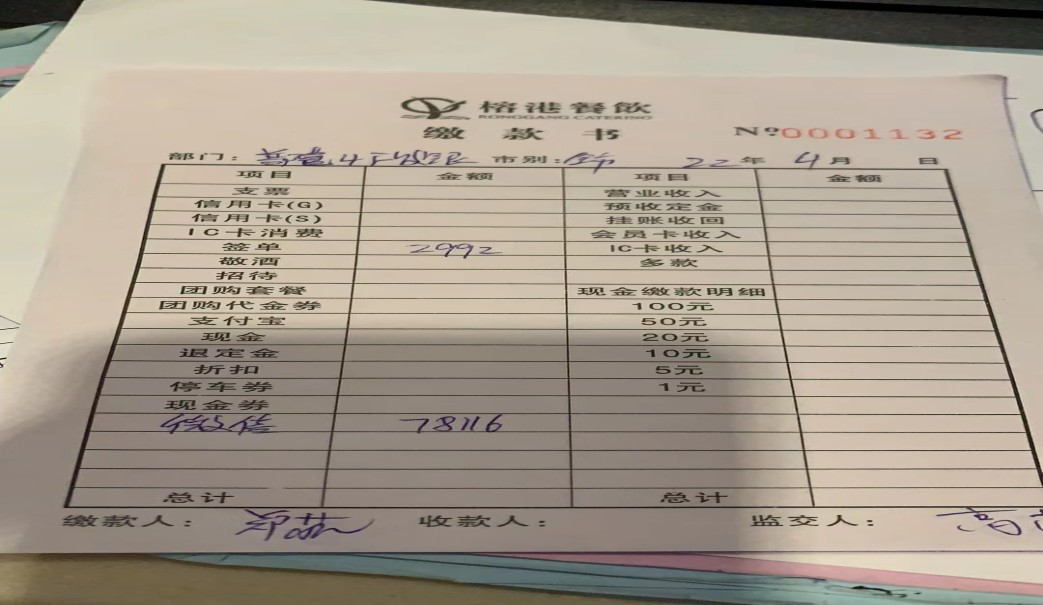 榕港餐飲
RONGGANG CATERING
缴款书 №0001132
部门： 市别： 22年4月 日
项目 金额 项目 金额
支票 营业收入
信用卡(G) 预收定金
信用卡(S) 挂账收回
IC卡消费 会员卡收入
签单 2992 IC卡收入
敬酒 多款
招待
团购套餐 现金缴款明细
团购代金券 100元
支付宝 50元
现金 20元
退定金 10元
折扣 5元
停车券 1元
现金券
微信 78116
总计 总计
缴款人： 收款人： 监交人：